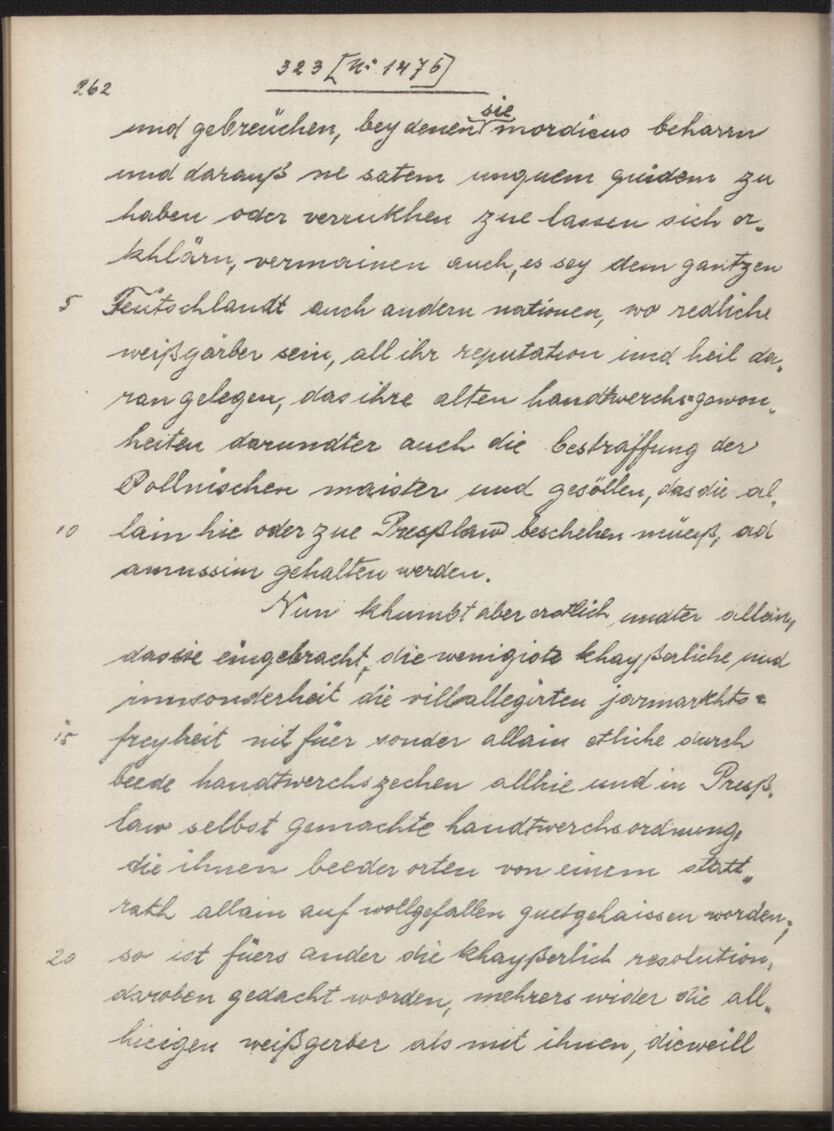 262
323 [N: 1476]
sie
und gebreüchen, bey denen mordicus beharrn
und darauß ne satem unquem quidem zu
haben oder verrukhen zue lassen sich er„
khlärn, vermainen auch, es sey dem gantzen
5 Teütschlandt auch andern nationen, wo redliche
weißgärber sein, all ihr reputation und heil da„
ran gelegen, das ihre alten handtwerchs=gewon„
heiten darundter auch die bestraffung der
Pollnischen maister und gesöllen, das die al„
10 lain hie oder zue Presßlaw beschehen müeß, ad
amussim gehalten werden.
Nun khumbt aber erstlich undter allem,
das sie eingebracht, die wenigiste khayßerliche und
innsonderheit die vill allegirten jarmarkhts=
15 freyheit nit füer sonder allain etliche durch
beede handtwerchszechen allhie und in Preß„
law selbst gemachte handtwerchsordnung,
die ihnen beeder orten von einem statt„
rath allain auf wollgefallen guetgehaissen worden;
20 so ist füers ander die khayßerlich resolution,
daroben gedacht worden, mehrers wider die all„
hieigen weißgerber als mit ihnen, dieweill